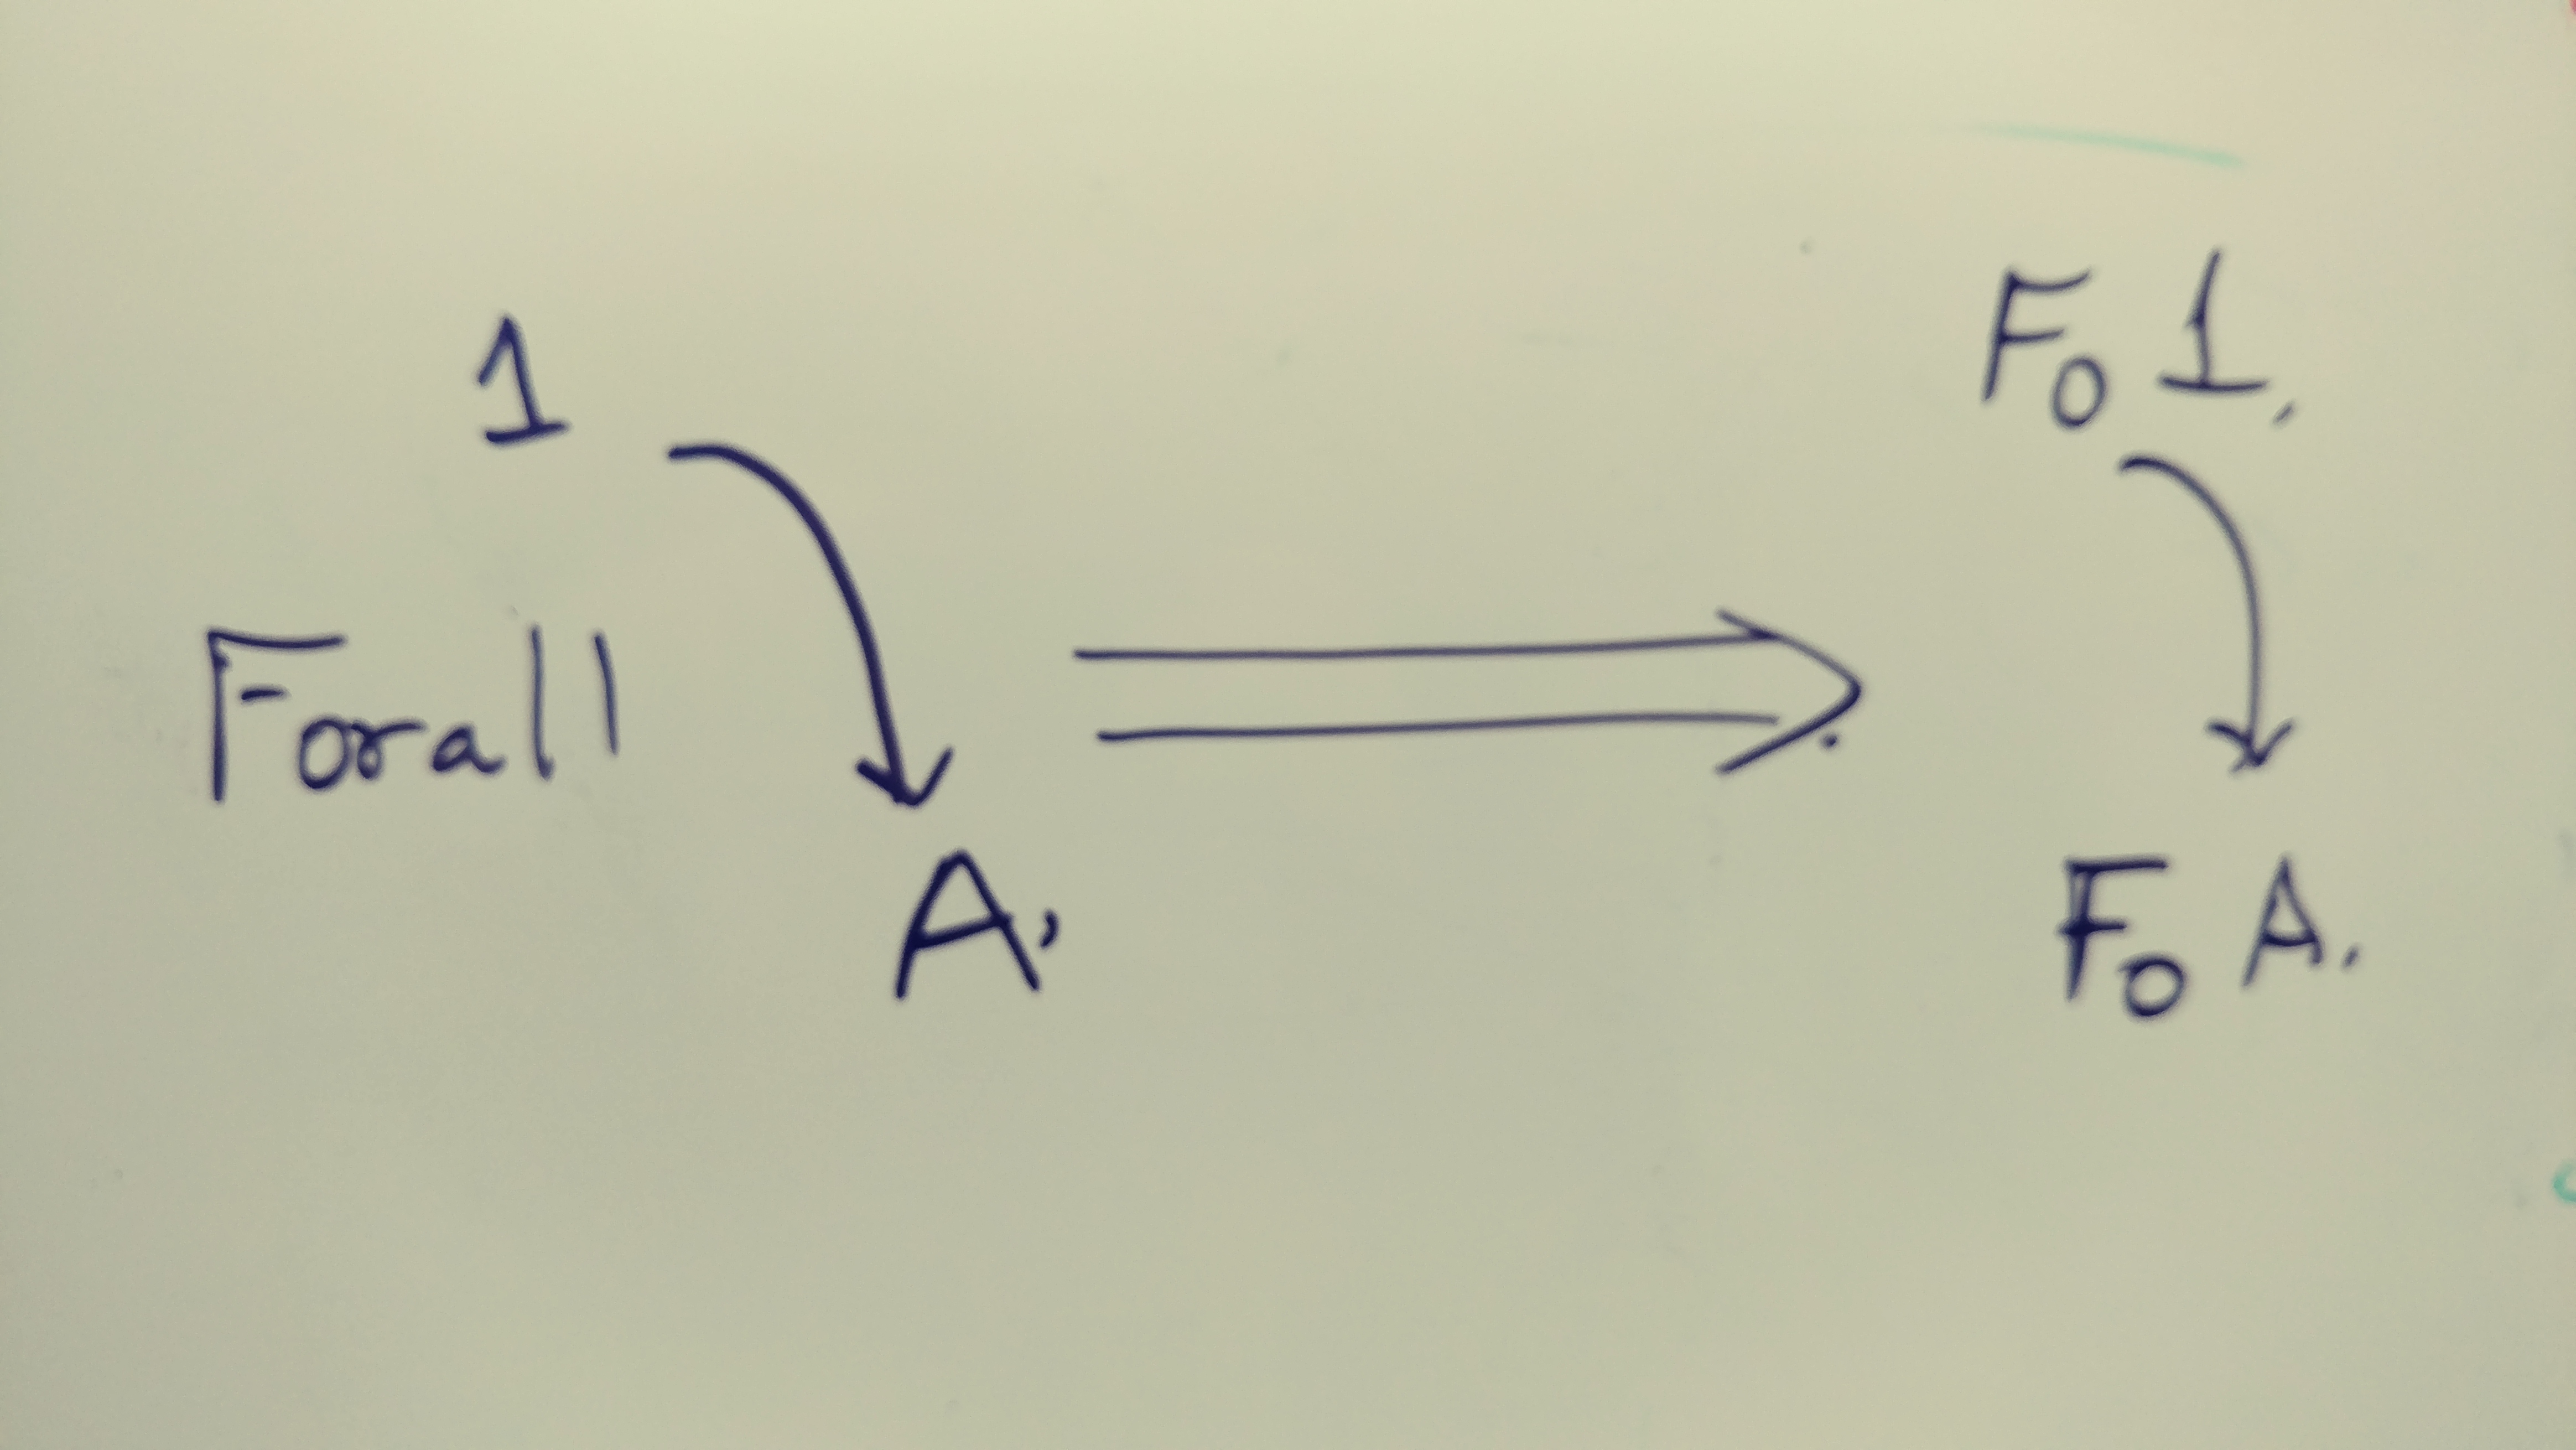 1
Forall
A,
F₀ 1.
F₀ A.